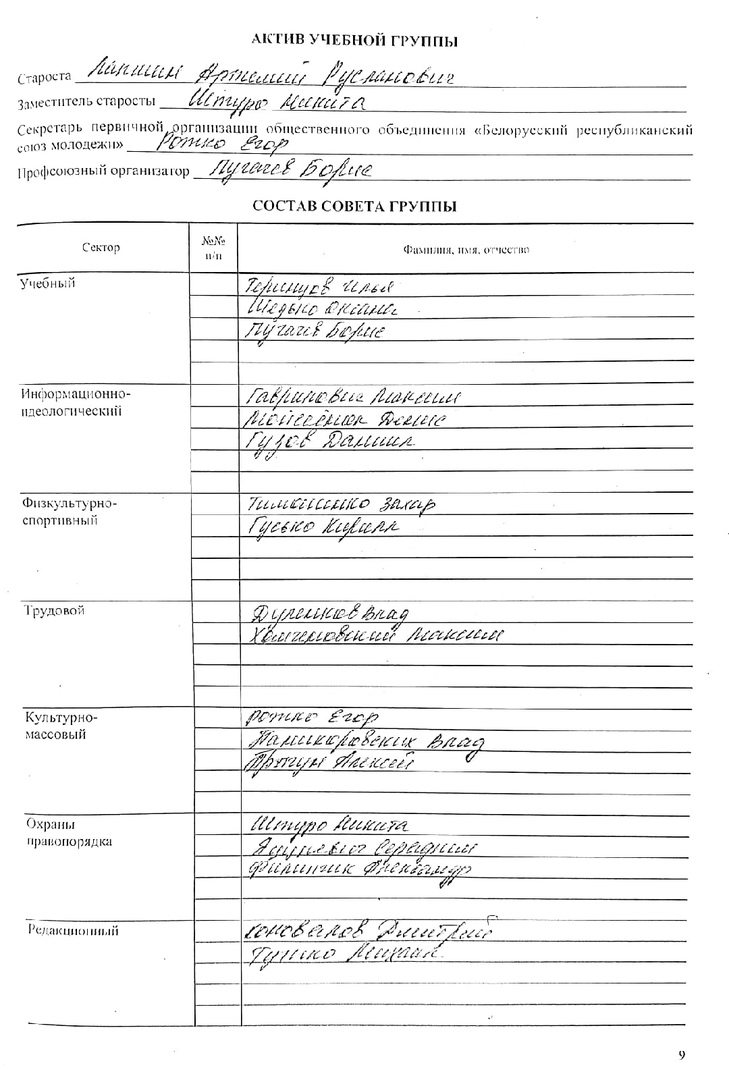 АКТИВ УЧЕБНОЙ ГРУППЫ
Староста Лапшин Артемий Русланович
Заместитель старосты Штуро Никита
Секретарь первичной организации общественного объединения «Белорусский республиканский
союз молодежи» Ротко Егор
Профсоюзный организатор Пугачев Борис
СОСТАВ СОВЕТА ГРУППЫ
Сектор
№№
п/п
Фамилия, имя, отчество
Учебный
Илья
Шедько
Пугачев Борис
Информационно-
идеологический
Гаврилович Максим
Денис
Гузов Даниил
Физкультурно-
спортивный
Захар
Гусько Кирилл
Трудовой
Влад
Максим
Культурно-
массовый
Ротко Егор
Влад
Алексей
Охраны
правопорядка
Штуро Никита
Филипчик Александр
Редакционный
Коновалов Дмитрий
Михаил
9